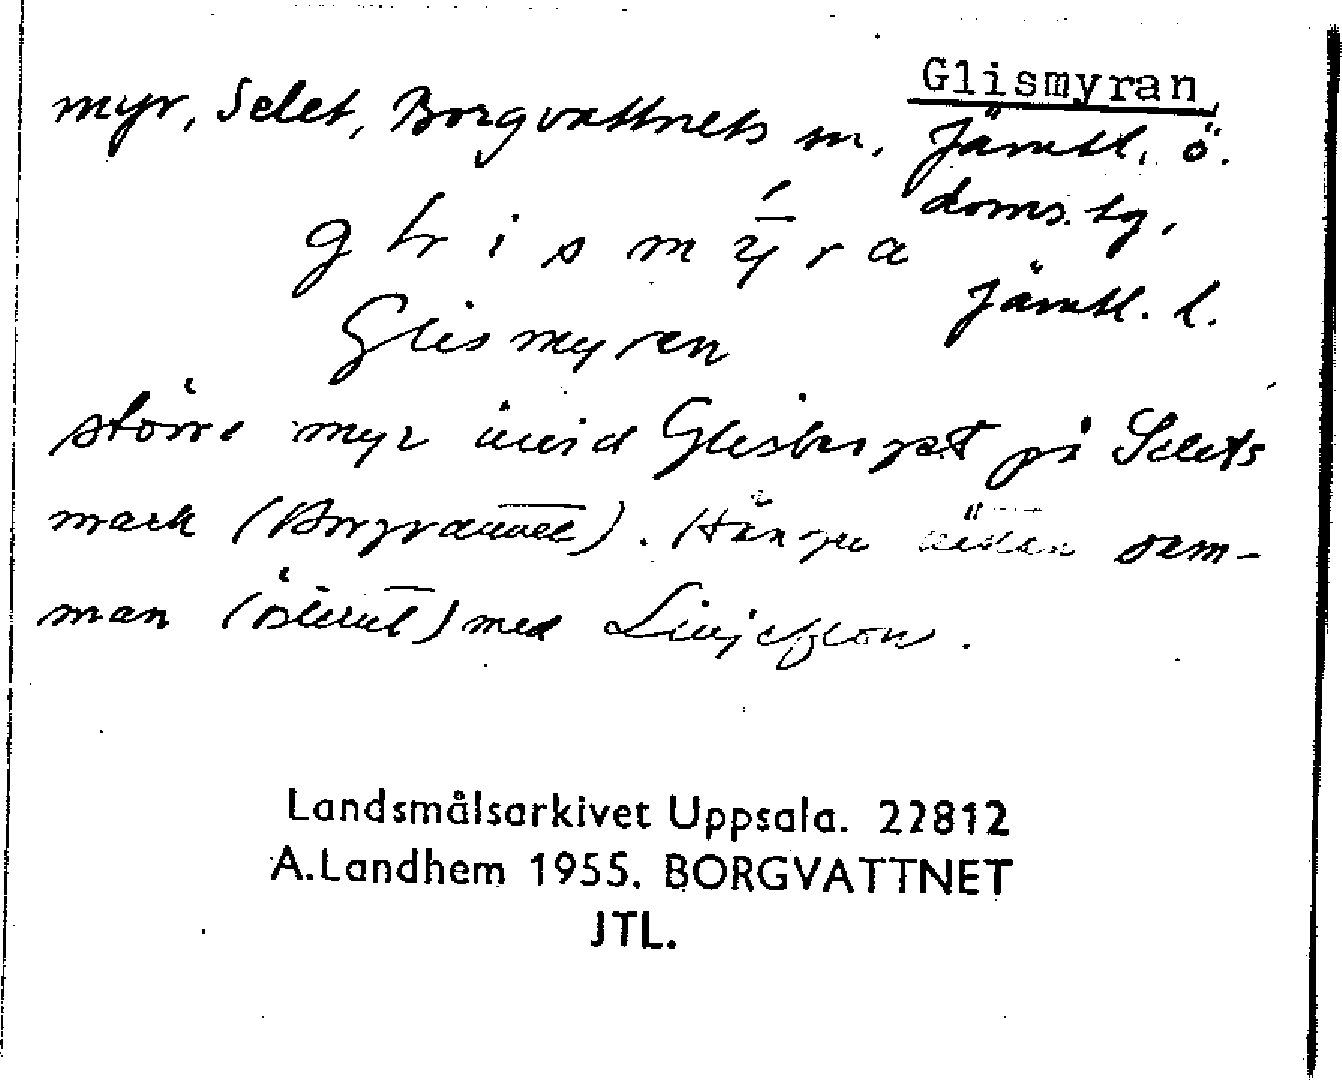 Glismyran,
myr, Selet, Borgvattnets sn, Jämtl. ö.
doms.lg,
Jämtl. l.
glismȳ́ra
Glismyren
större myr invid Glisberget på Selets
mark (Borgvattnet). Hänger nästan sam-
man (österut) med
Landsmålsarkivet Uppsala. 22812
A.Landhem 1955. BORGVATTNET
JTL.